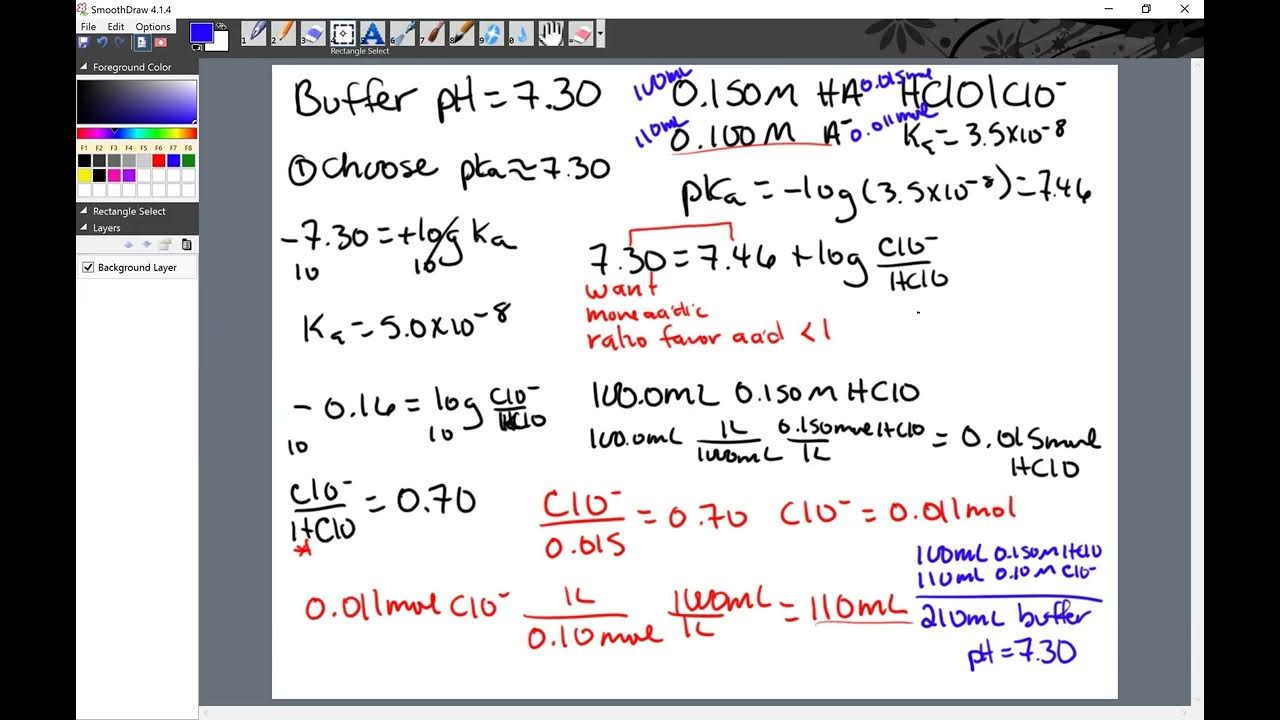 SmoothDraw 4.1.4
File Edit Options
1 2 3 4 5 6 7 8 9 0
Rectangle Select
Foreground Color
F1 F2 F3 F4 F5 F6 F7 F8
Rectangle Select
Layers
Background Layer
Buffer pH = 7.30
① Choose pka ≈ 7.30
-7.30 = +log Ka
10 10
Ka = 5.0×10⁻⁸
100mL 0.150M HA 0.015mol HClO/ClO⁻
110mL 0.100M A⁻ 0.011mol Ka = 3.5×10⁻⁸
pKa = -log(3.5×10⁻⁸) = 7.46
7.30 = 7.46 + log ClO⁻/HClO
want
more acidic
ratio favor acid < 1
-0.16 = log ClO⁻/HClO
10 10
100.0mL 0.150M HClO
100.0mL 1L/1000mL 0.150mol HClO/1L = 0.015mol HClO
ClO⁻/HClO = 0.70
ClO⁻/0.015 = 0.70 ClO⁻ = 0.011mol
0.011mol ClO⁻ 1L/0.10mol 1000mL/1L = 110mL
100mL 0.150M HClO
110mL 0.10M ClO⁻
210mL buffer
pH = 7.30